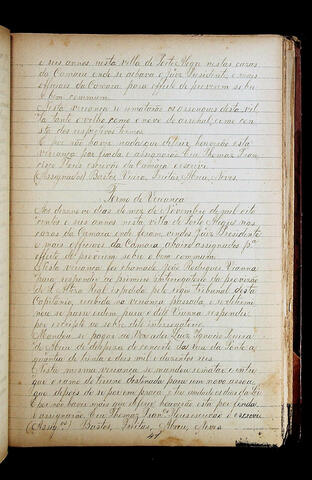 e seis annos nesta villa de Porto Alegre nas casas
da Camara onde se achava o Juiz Presidente e mais
officiaes da Camara para effeito de proverem sobre
o bem commum.
Nesta veriança se arrematarão os açougues desta vil
la tanto o velho como o novo do arsenal, como cons
ta dos respectivos termos.
E por não haver nada que deferir houverão esta
veriança por finda e assignarão. Eu Thomaz Fran
cisco escrivão da Camara o escrevi.
(Assignados) Bastos, Vieira, Freitas, Abreu, Neves.
Termo de Veriança
Aos dias do mez de Novembro de mil oito
centos e seis annos nesta villa de Porto Alegre nas
casas da Camara onde foram vindos Juiz Presidente
e mais officiaes da Camara, abaixo assignados pª
effeito de proverem sobre o bem commum.
Nesta veriança foi chamado João Rodrigues Vianna
para responder ao primeiro interrogatorio da provisão
de expedida pelo regio tribunal desta
Capitania, recebida na veriança passada, e se determi
nou se passe ordem para o dito Vianna responder
por escripto ao sobre dito interrogatorio.
Mandou se pagar ao Vereador Luiz Ignacio Pereira
de Abreu de despeza do concerto da rua da Ponte a
quantia de trinta e dois mil e duzentos reis.
Nesta mesma veriança se mandou
que o ramo de terreno destinado para um novo açougue
que depois de se por em praça,
E por não haver mais que deferir houverão esta por finda
e assignarão. Eu Thomaz Franco escrivão o escrevi
(Assigos) Bastos, Freitas, Abreu, Neves
41